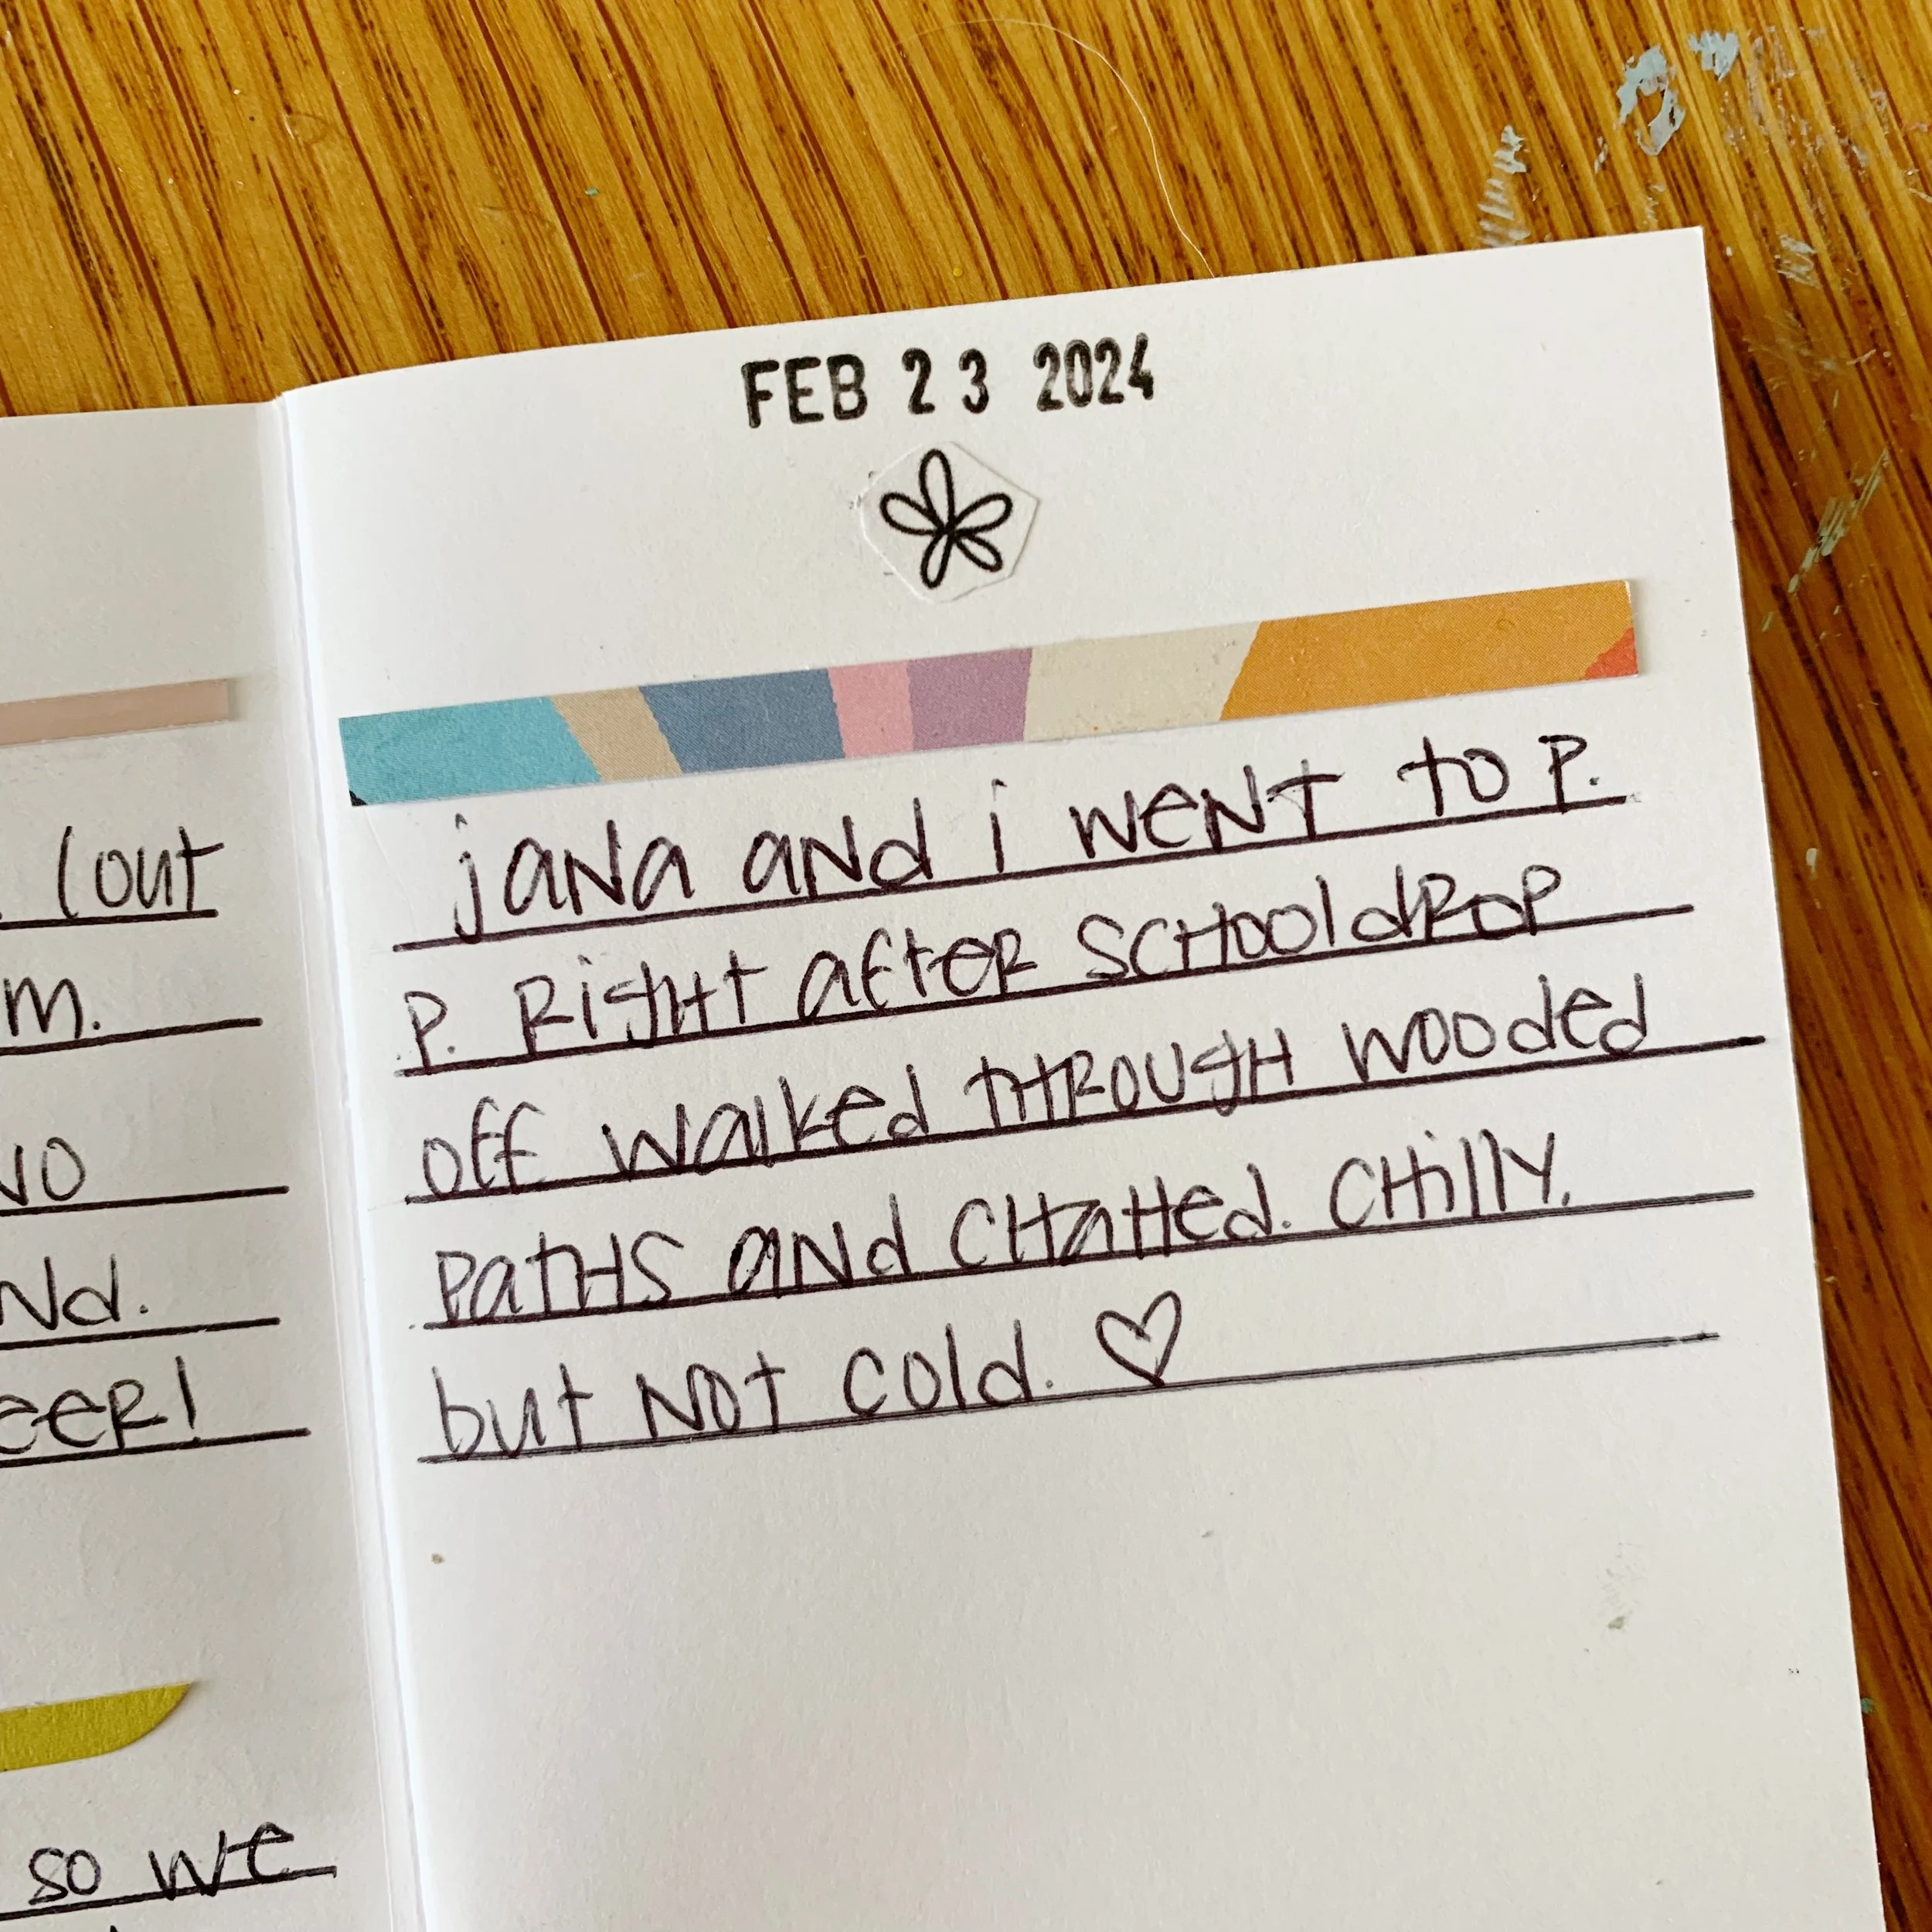 (out
m.
nd.
eer!
so we
FEB 23 2024
jana and i went to P.
P. Right after school drop
off walked through wooded
paths and chatted. Chilly.
but not cold. ♡